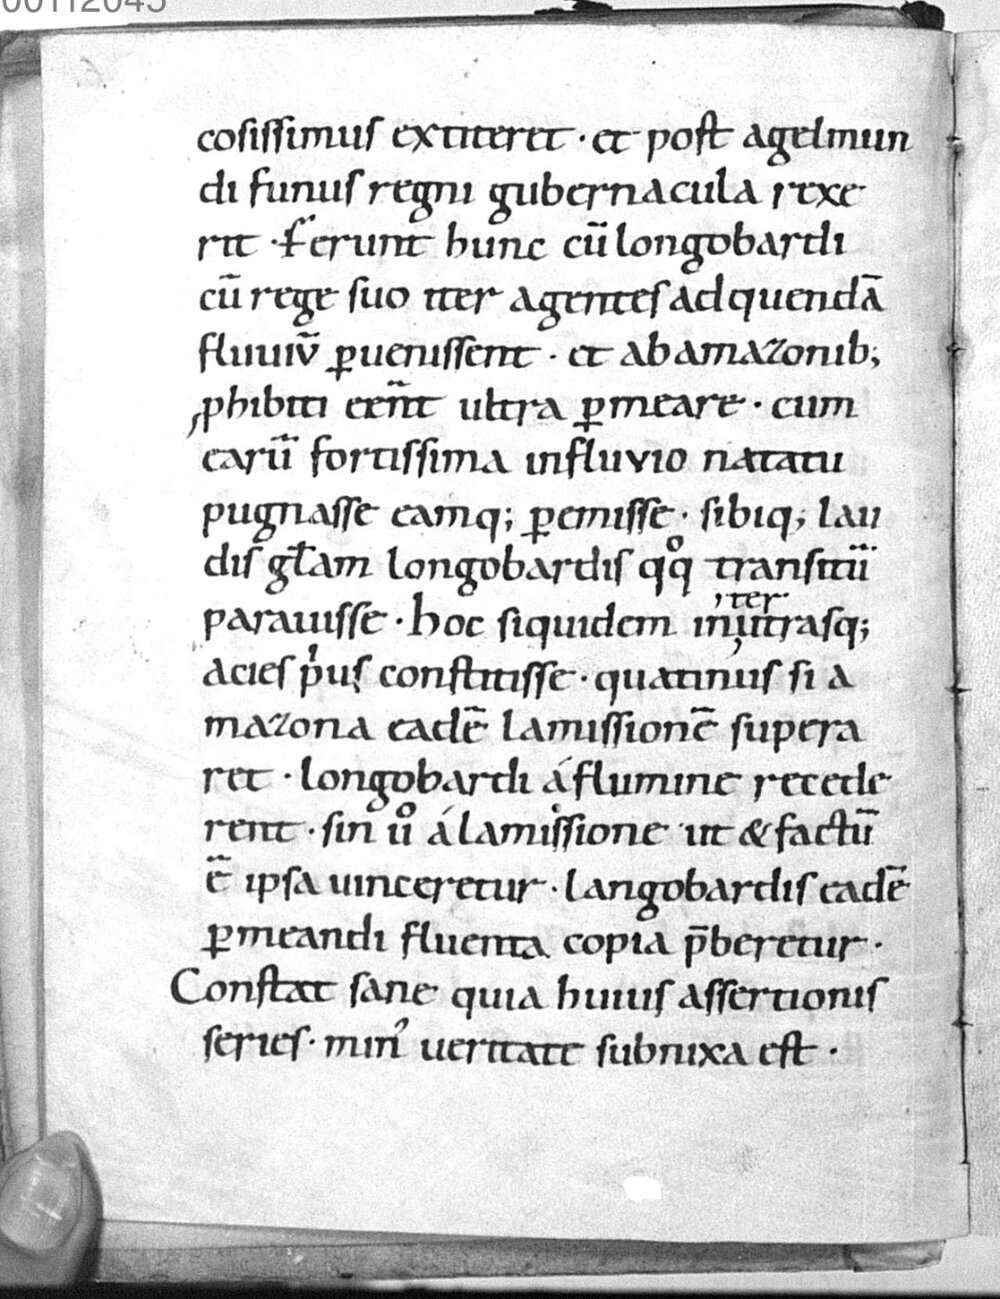 00112645
cosissimus extiterit · et post agelmun
di funus regni gubernacula rexe
rit · ferunt hunc cū longobardi
cū rege suo iter agentes ad quendā
fluuiū ꝑuenissent · et ab amazonib;
ꝓhibiti eēnt ultra ꝑmeare · cum
earū fortissima in fluvio natatu
pugnasse eamq; ꝑemisse · sibiq; lau
dis gl̄am longobardis qͦq transitū
parauisse · hoc siquidem int utrasq;
iter
acies pͥus constitisse · quatinus si a
mazona eadē lamissionē supera
ret · longobardi á flumine recede
rent · sin uͦ á lamissione ut & factū
ē ipsa uinceretur · langobardis eadē
ꝑmeandi fluenta copia p̄beretur ·
Constat sane quia huius assertionis
series · minꝰ ueritate subnixa est ·